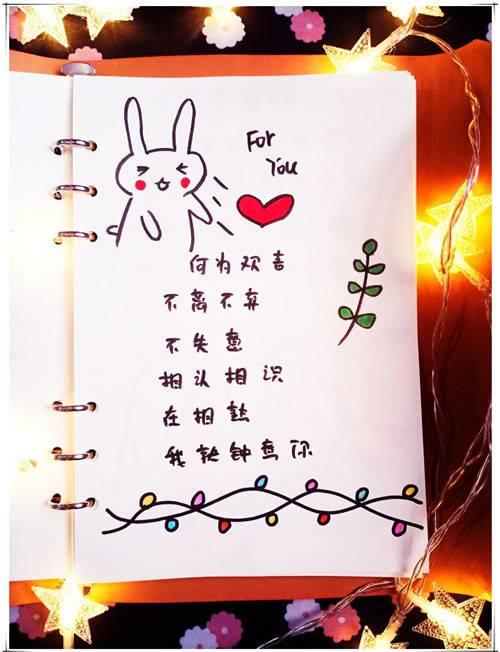 For
You
何为欢喜
不离不弃
不失意
相认相识
在相
我钟意你